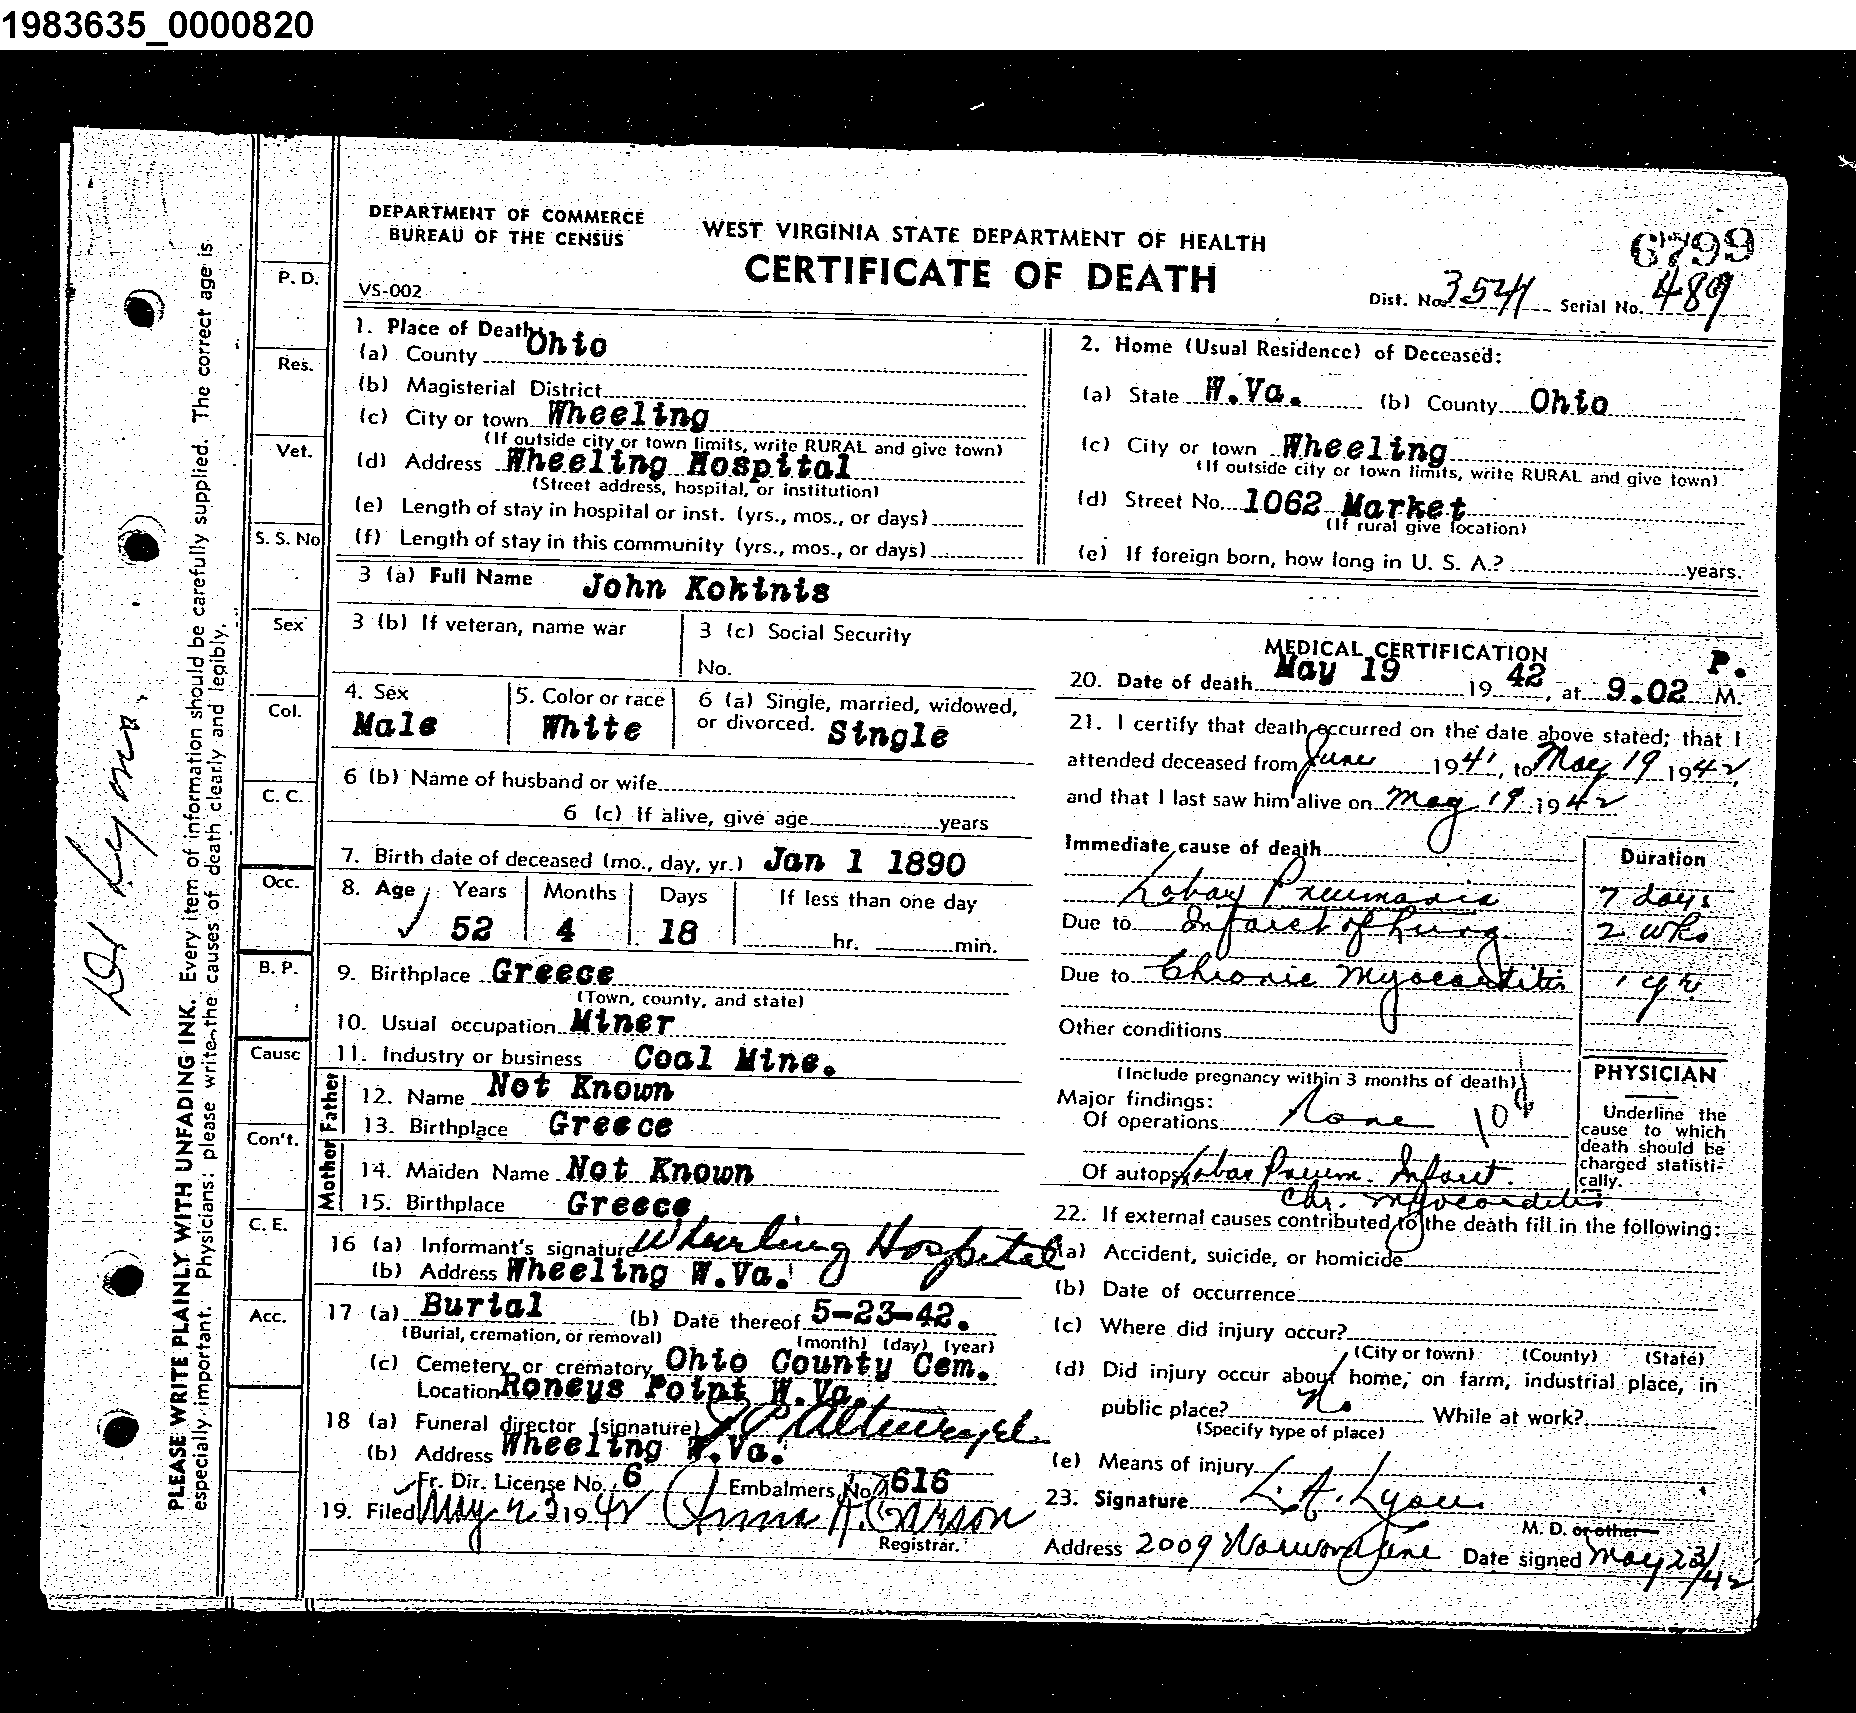 1983635_0000820
DEPARTMENT OF COMMERCE
BUREAU OF THE CENSUS
WEST VIRGINIA STATE DEPARTMENT OF HEALTH
CERTIFICATE OF DEATH
VS-002
6799
Dist. No. 3541 Serial No. 489
1. Place of Death:
(a) County Ohio
(b) Magisterial District
(c) City or town Wheeling
(If outside city or town limits, write RURAL and give town)
(d) Address Wheeling Hospital
(Street address, hospital, or institution)
(e) Length of stay in hospital or inst. (yrs., mos., or days)
(f) Length of stay in this community (yrs., mos., or days)
2. Home (Usual Residence) of Deceased:
(a) State W.Va. (b) County Ohio
(c) City or town Wheeling
(If outside city or town limits, write RURAL and give town)
(d) Street No. 1062 Market
(If rural give location)
(e) If foreign born, how long in U. S. A.? years.
3 (a) Full Name John Kokinis
3 (b) If veteran, name war
3 (c) Social Security
No.
4. Sex
Male
5. Color or race
White
6 (a) Single, married, widowed,
or divorced. Single
6 (b) Name of husband or wife
6 (c) If alive, give age years
7. Birth date of deceased (mo., day, yr.) Jan 1 1890
8. Age Years Months Days If less than one day
52 4 18 hr. min.
9. Birthplace Greece
(Town, county, and state)
10. Usual occupation Miner
11. Industry or business Coal Mine.
Father
12. Name Not Known
13. Birthplace Greece
Mother
14. Maiden Name Not Known
15. Birthplace Greece
16 (a) Informant's signature Wheeling Hospital
(b) Address Wheeling W.Va.
17 (a) Burial (b) Date thereof 5-23-42.
(Burial, cremation, or removal) (month) (day) (year)
(c) Cemetery or crematory Ohio County Cem.
Location Roneys Point W.Va.
18 (a) Funeral director (signature)
(b) Address Wheeling W.Va.
Fr. Dir. License No. 6 Embalmers No. 616
19. Filed May 23 1942 Anna H. Carson
Registrar.
MEDICAL CERTIFICATION
20. Date of death May 19 1942, at 9.02 P. M.
21. I certify that death occurred on the date above stated; that I
attended deceased from June 1941, to May 19 1942,
and that I last saw him alive on May 19 1942
Immediate cause of death
Duration
Lobar Pneumonia 7 days
Due to Infarct of Lung 2 wks
Due to Chronic Myocarditis 1 yr.
Other conditions
(Include pregnancy within 3 months of death)
Major findings:
Of operations None
Of autopsy Lobar Pneum. Infarct.
Chr. Myocarditis
PHYSICIAN
Underline the
cause to which
death should be
charged statisti-
cally.
22. If external causes contributed to the death fill in the following:
(a) Accident, suicide, or homicide
(b) Date of occurrence
(c) Where did injury occur?
(City or town) (County) (State)
(d) Did injury occur about home, on farm, industrial place, in
public place? No While at work?
(Specify type of place)
(e) Means of injury
23. Signature L. A. Lyon
M. D. or other
Address 2009 Date signed May 23/42
P. D.
Res.
Vet.
S. S. No
Sex
Col.
C. C.
Occ.
B. P.
Cause
Con't.
C. E.
Acc.
PLEASE WRITE PLAINLY WITH UNFADING INK. Every item of information should be carefully supplied. The correct age is
especially important. Physicians: please write the causes of death clearly and legibly.